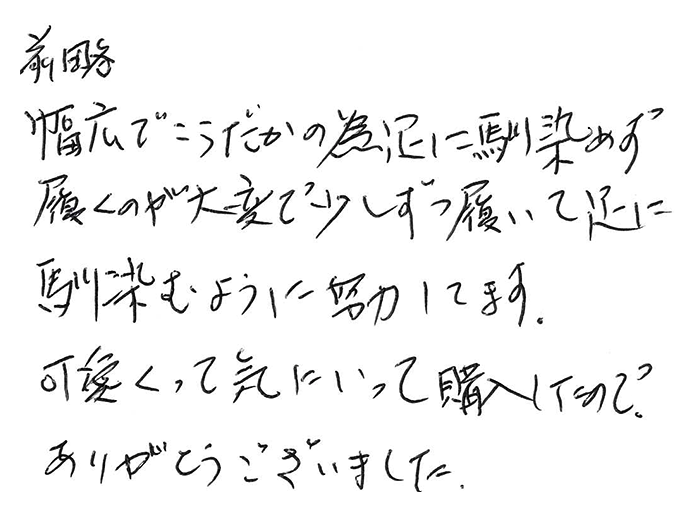 前略
幅広でこうだかの為足に馴染めず
履くのが大変で少しずつ履いて足に
馴染むように努力してます.
可愛くって気にいって購入したので.
ありがとうございました.